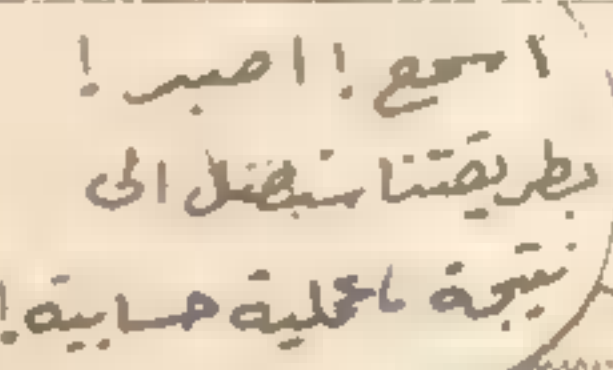 اسمع ! اصبر !
بطريقتنا سنصل الى
نتيجة ما عملية حسابية !